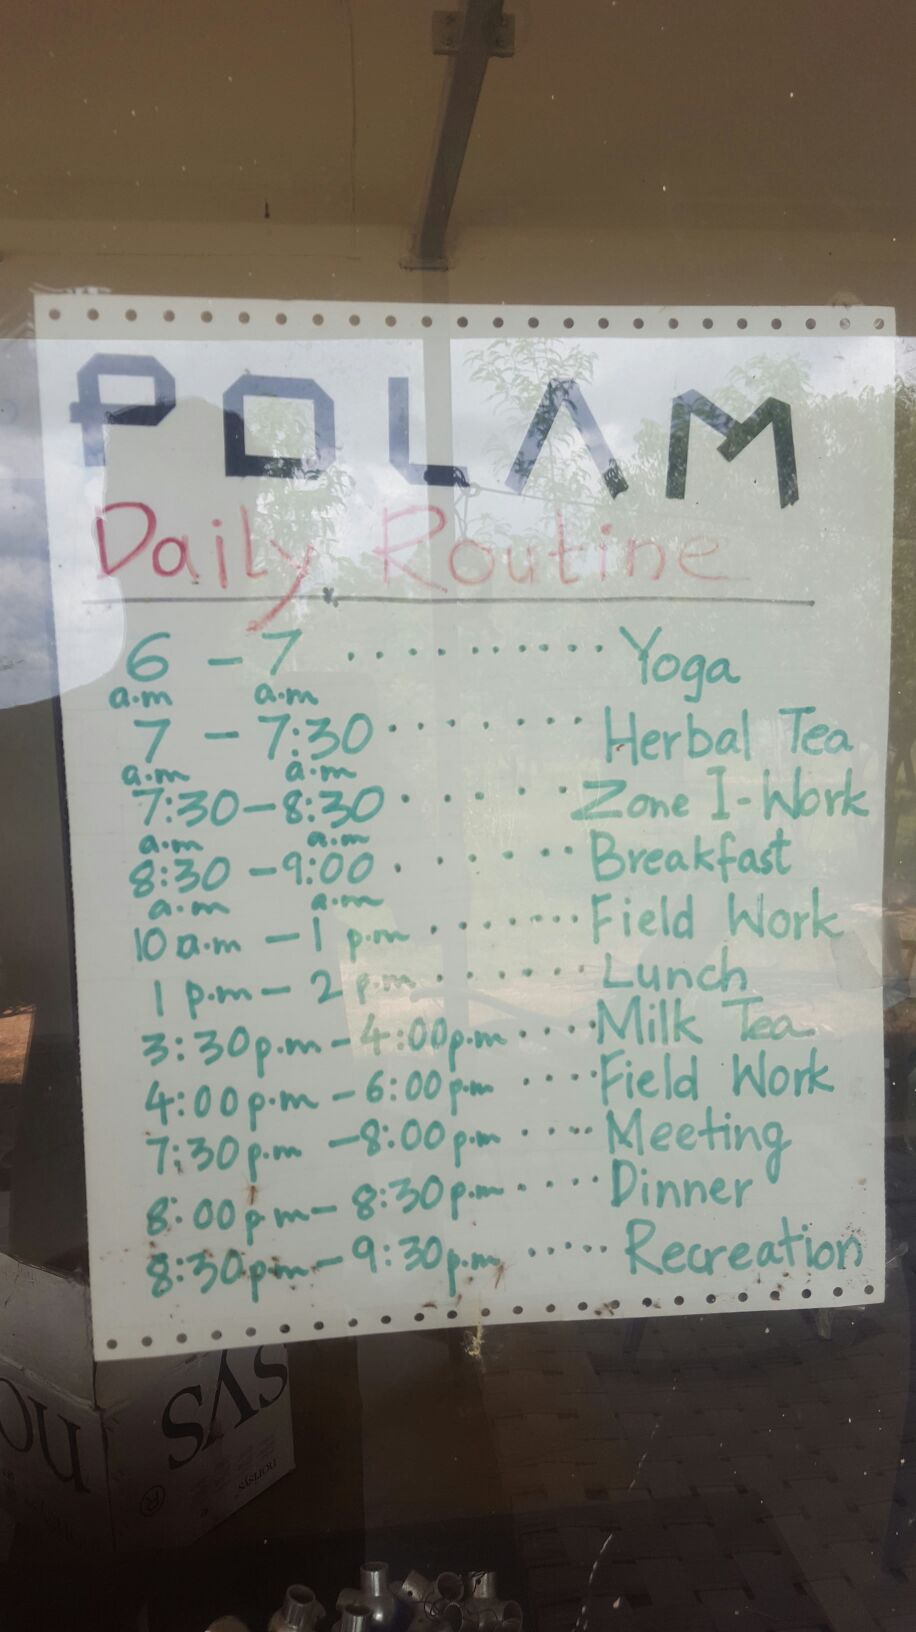 POLAM
Daily Routine
6 - 7 .......... Yoga
a.m a.m
7 - 7:30 ....... Herbal Tea
a.m a.m
7:30 - 8:30 ...... Zone I-Work
a.m a.m
8:30 - 9:00 ...... Breakfast
a.m a.m
10 a.m - 1 p.m ........ Field Work
1 p.m - 2 p.m ....... Lunch
3:30p.m - 4:00p.m .... Milk Tea
4:00p.m - 6:00p.m .... Field Work
7:30p.m - 8:00p.m .... Meeting
8:00p.m - 8:30p.m ..... Dinner
8:30pm - 9:30p.m ..... Recreation
SVS
®